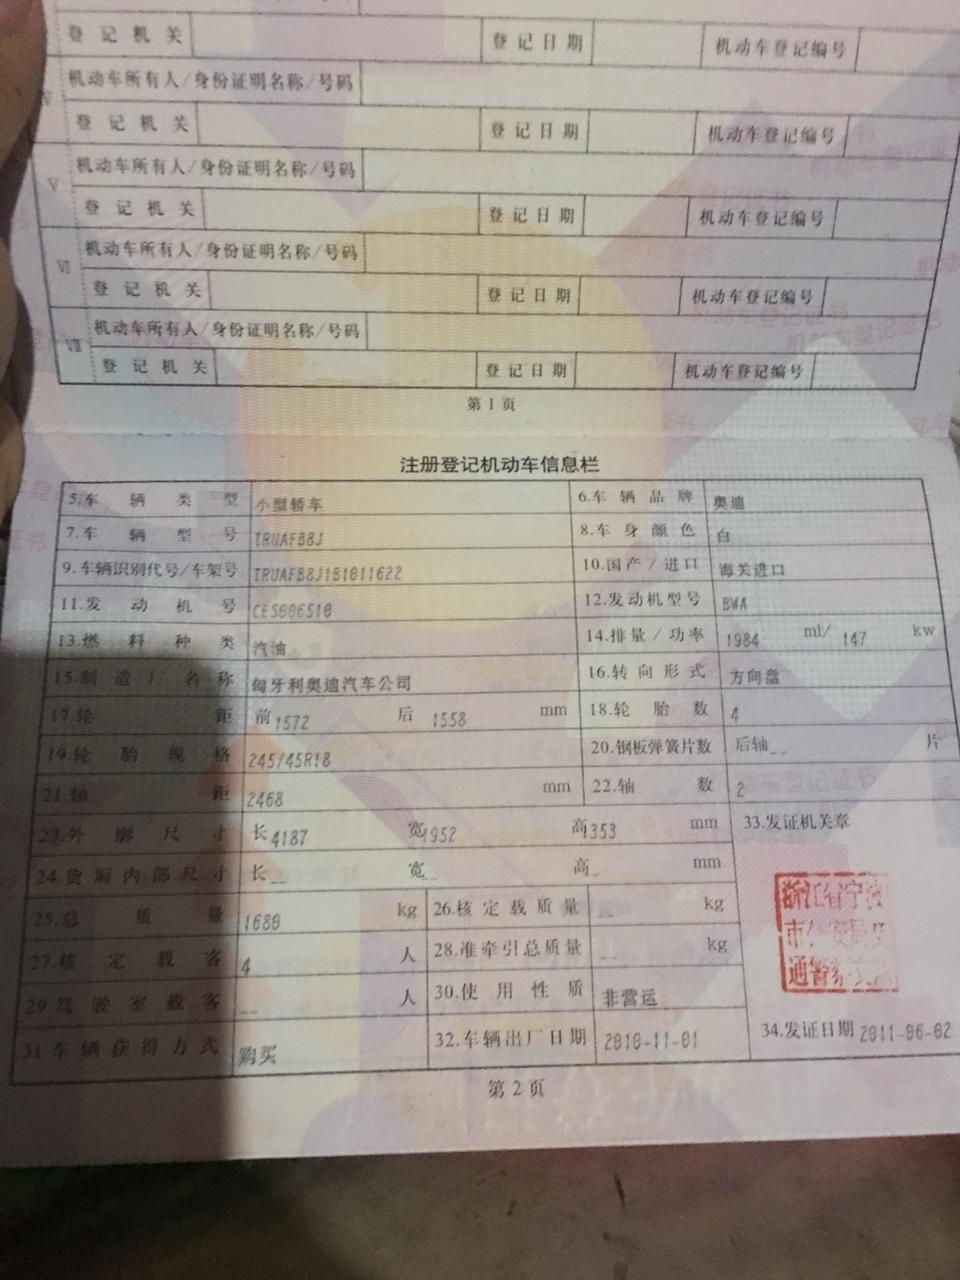 登记机关 登记日期 机动车登记编号
机动车所有人/身份证明名称/号码
登记机关 登记日期 机动车登记编号
Ⅴ 机动车所有人/身份证明名称/号码
登记机关 登记日期 机动车登记编号
Ⅵ 机动车所有人/身份证明名称/号码
登记机关 登记日期 机动车登记编号
Ⅶ 机动车所有人/身份证明名称/号码
登记机关 登记日期 机动车登记编号
第1页
注册登记机动车信息栏
5.车辆类型 小型轿车 6.车辆品牌 奥迪
7.车辆型号 TRUAFB8J 8.车身颜色 白
9.车辆识别代号/车架号 TRUAFB8J1B1011622 10.国产/进口 海关进口
11.发动机号 CES006510 12.发动机型号 BWA
13.燃料种类 汽油 14.排量/功率 1984 ml/ 147 kw
15.制造厂名称 匈牙利奥迪汽车公司 16.转向形式 方向盘
17.轮距 前1572 后 1558 mm 18.轮胎数 4
19.轮胎规格 245/45R18 20.钢板弹簧片数 后轴-- 片
21.轴距 2468 mm 22.轴数 2
23.外廓尺寸 长4187 宽1952 高1353 mm 33.发证机关章
24.货厢内部尺寸 长-- 宽-- 高-- mm
25.总质量 1680 kg 26.核定载质量 -- kg
27.核定载客 4 人 28.准牵引总质量 -- kg
29.驾驶室载客 -- 人 30.使用性质 非营运
31.车辆获得方式 购买 32.车辆出厂日期 2010-11-01 34.发证日期 2011-06-02
浙江省宁波
市公安局交
通警察支队
第2页